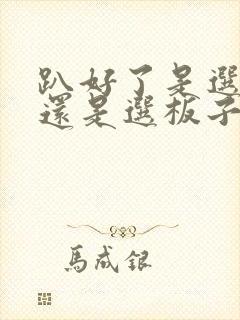 趴好了是選
還是選板子
馬成銀